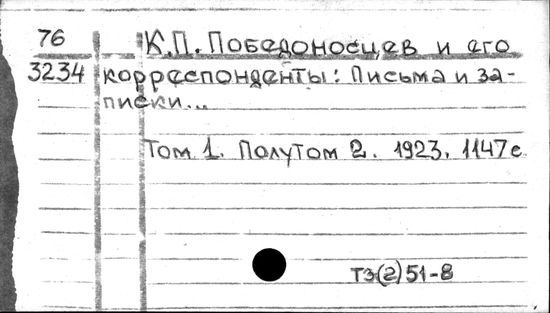 76 К.П. Победоносцев и его
3234 корреспонденты: Письма и за-
писки...
Том 1. Полутом 2. 1923. 1147 с
тз(2)51-8